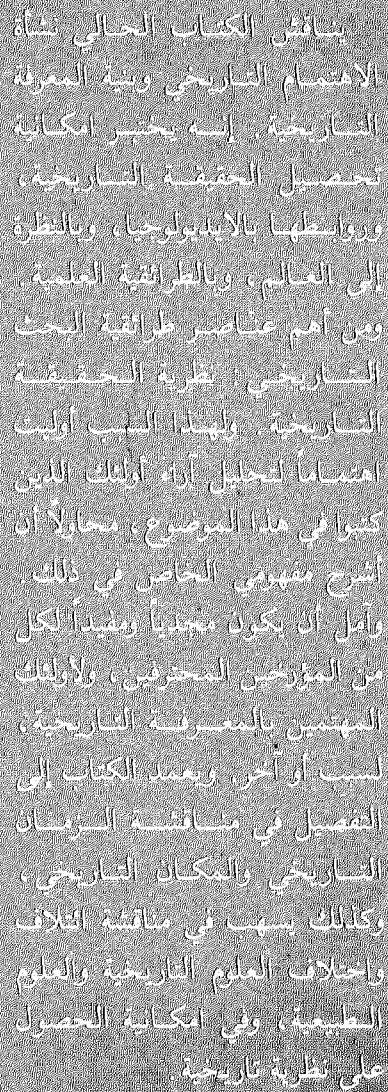 يناقش الكتاب الحالي نشأة
الاهتمام التاريخي وبنية المعرفة
التاريخية. إنه يختبر امكانية
تحصيل الحقيقة التاريخية،
وروابطها بالايديولوجيا، وبالنظرة
إلى العالم، وبالطرائقية العلمية.
ومن أهم عناصر طرائقية البحث
التاريخي: نظرية الحقيقة
التاريخية. ولهذا السبب أوليت
اهتماماً لتحليل آراء أولئك الذين
كتبوا في هذا الموضوع، محاولاً أن
أشرح مفهومي الخاص في ذلك.
وآمل أن يكون مجدياً ومفيداً لكل
من المؤرخين المحترفين، ولأولئك
المهتمين بالمعرفة التاريخية،
لسبب أو آخر. ويعمد الكتاب إلى
التفصيل في مناقشة الزمان
التاريخي والمكان التاريخي،
وكذلك يسهب في مناقشة ائتلاف
واختلاف العلوم التاريخية والعلوم
الطبيعية، وفي امكانية الحصول
على نظرية تاريخية.